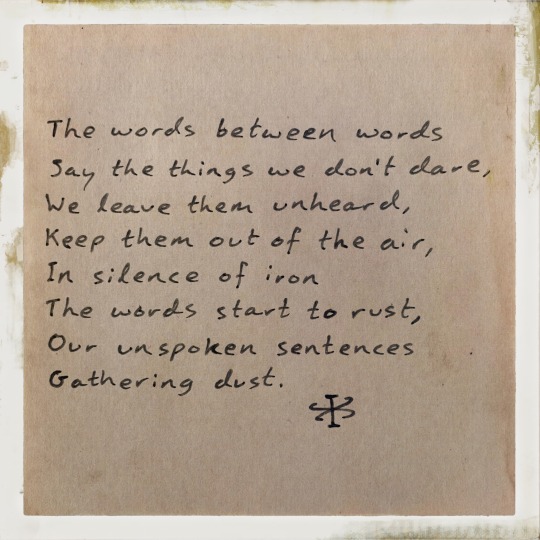 The words between words
Say the things we don't dare,
We leave them unheard,
Keep them out of the air,
In silence of iron
The words start to rust,
Our unspoken sentences
Gathering dust.